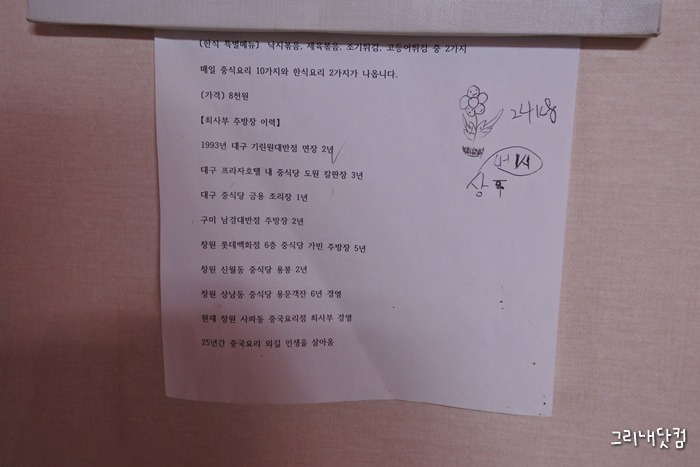 (한식 특별메뉴) 낙지볶음, 제육볶음, 조기튀김, 고등어튀김 중 2가지
매일 중식요리 10가지와 한식요리 2가지가 나옵니다.
(가격) 8천원
【최사부 주방장 이력】
1993년 대구 기린원대반점 면장 2년
대구 프라자호텔 내 중식당 도원 칼판장 3년
대구 중식당 금용 조리장 1년
구미 남경대반점 주방장 2년
창원 롯데백화점 6층 중식당 가빈 주방장 5년
창원 신월동 중식당 용봉 2년
창원 상남동 중식당 용문객잔 6년 경영
현재 창원 사파동 중국요리점 최사부 경영
25년간 중국요리 외길 인생을 살아옴
그리내닷컴